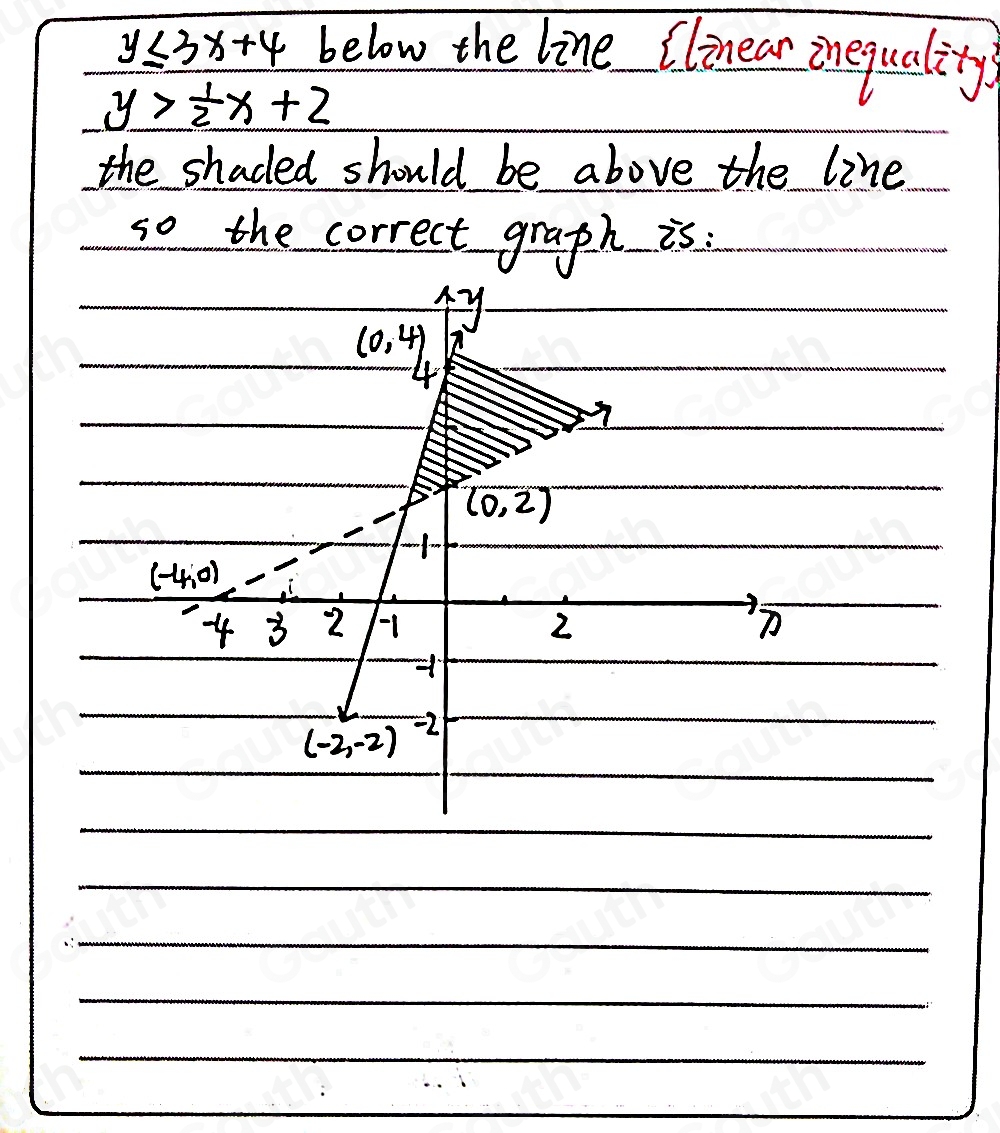 y≤3x+4 below the line {linear inequality}
y > 1/2 x + 2
the shaded should be above the line
so the correct graph is:
y
(0,4)
4
(0,2)
1
(-4,0)
-4 3 2 -1 2 x
-1
-2
(-2,-2)
Gauth